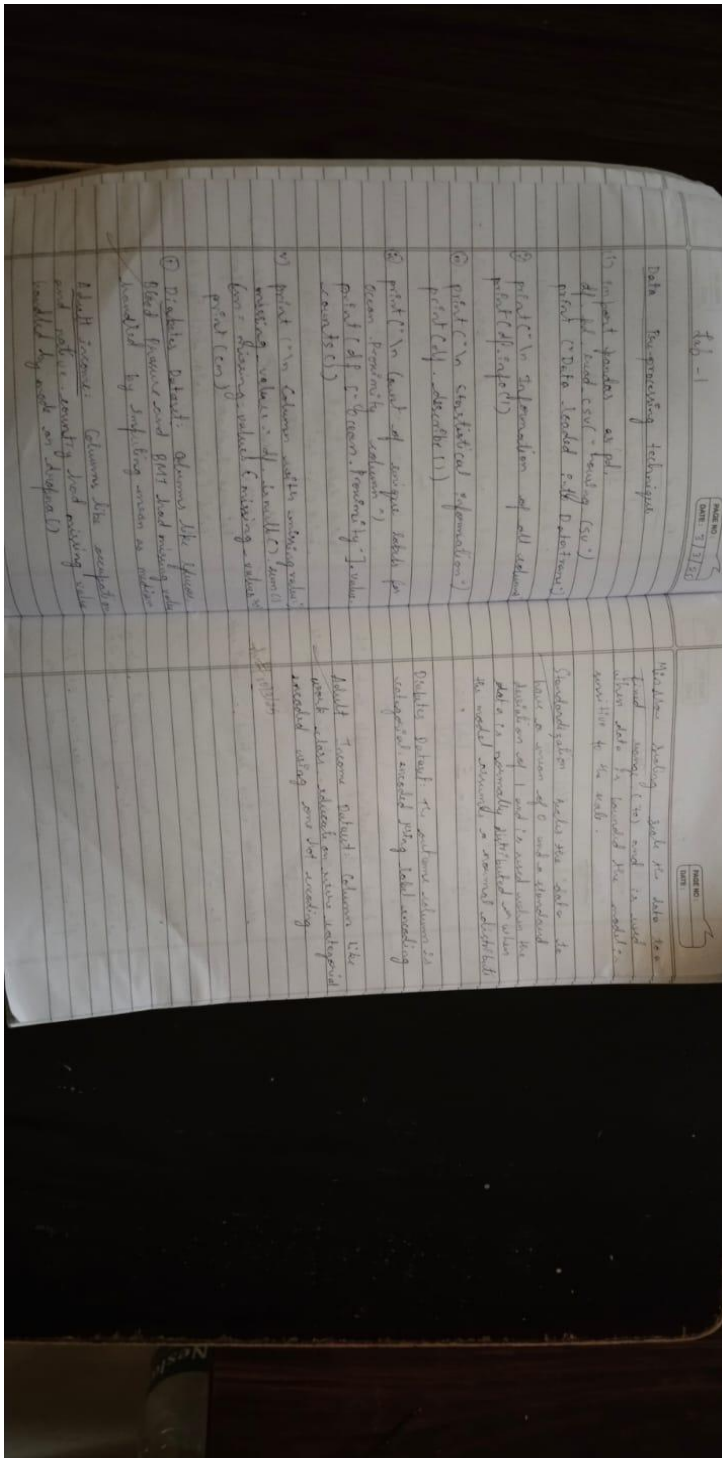 PAGE NO
DATE 3/3/25
Lab - 1
Data Pre-processing techniques
i) import pandas as pd.
df = pd. read csv("housing csv")
print ("Data loaded into Dataframe")
print ("\n Information of all column
print (df.info())
iii) print ("\n Statistical information")
print (df. describe ())
print ("\n Count of unique labels for
Ocean Proximity column")
print (df ["Ocean. Proximity"]. value.
counts())
v) print ("\n Column with missing value
missing_values = df. isnull(). sum()
cm = missing_values [missing_values
print (cm)
① Diabetes Dataset: Columns like
Blood pressure and BMI had missing
handled by mean or median
Adult income: Columns like occupation
and native country had missing value
handled by mode or dropna()
PAGE NO
DATE
MinMax Scaling scale the data to a
fixed range and is used
when data is bounded the model is
sensitive to the scale.
Standardization scales the data to
have a mean of 0 and a standard
deviation of 1 and is used when the
data is normally distributed or when
the model assumes a normal distribute
Diabetes Dataset: The outcome column is
categorical encoded using label encoding
Adult Income Dataset Column like
work class, education were categorical
encoded using one hot encoding